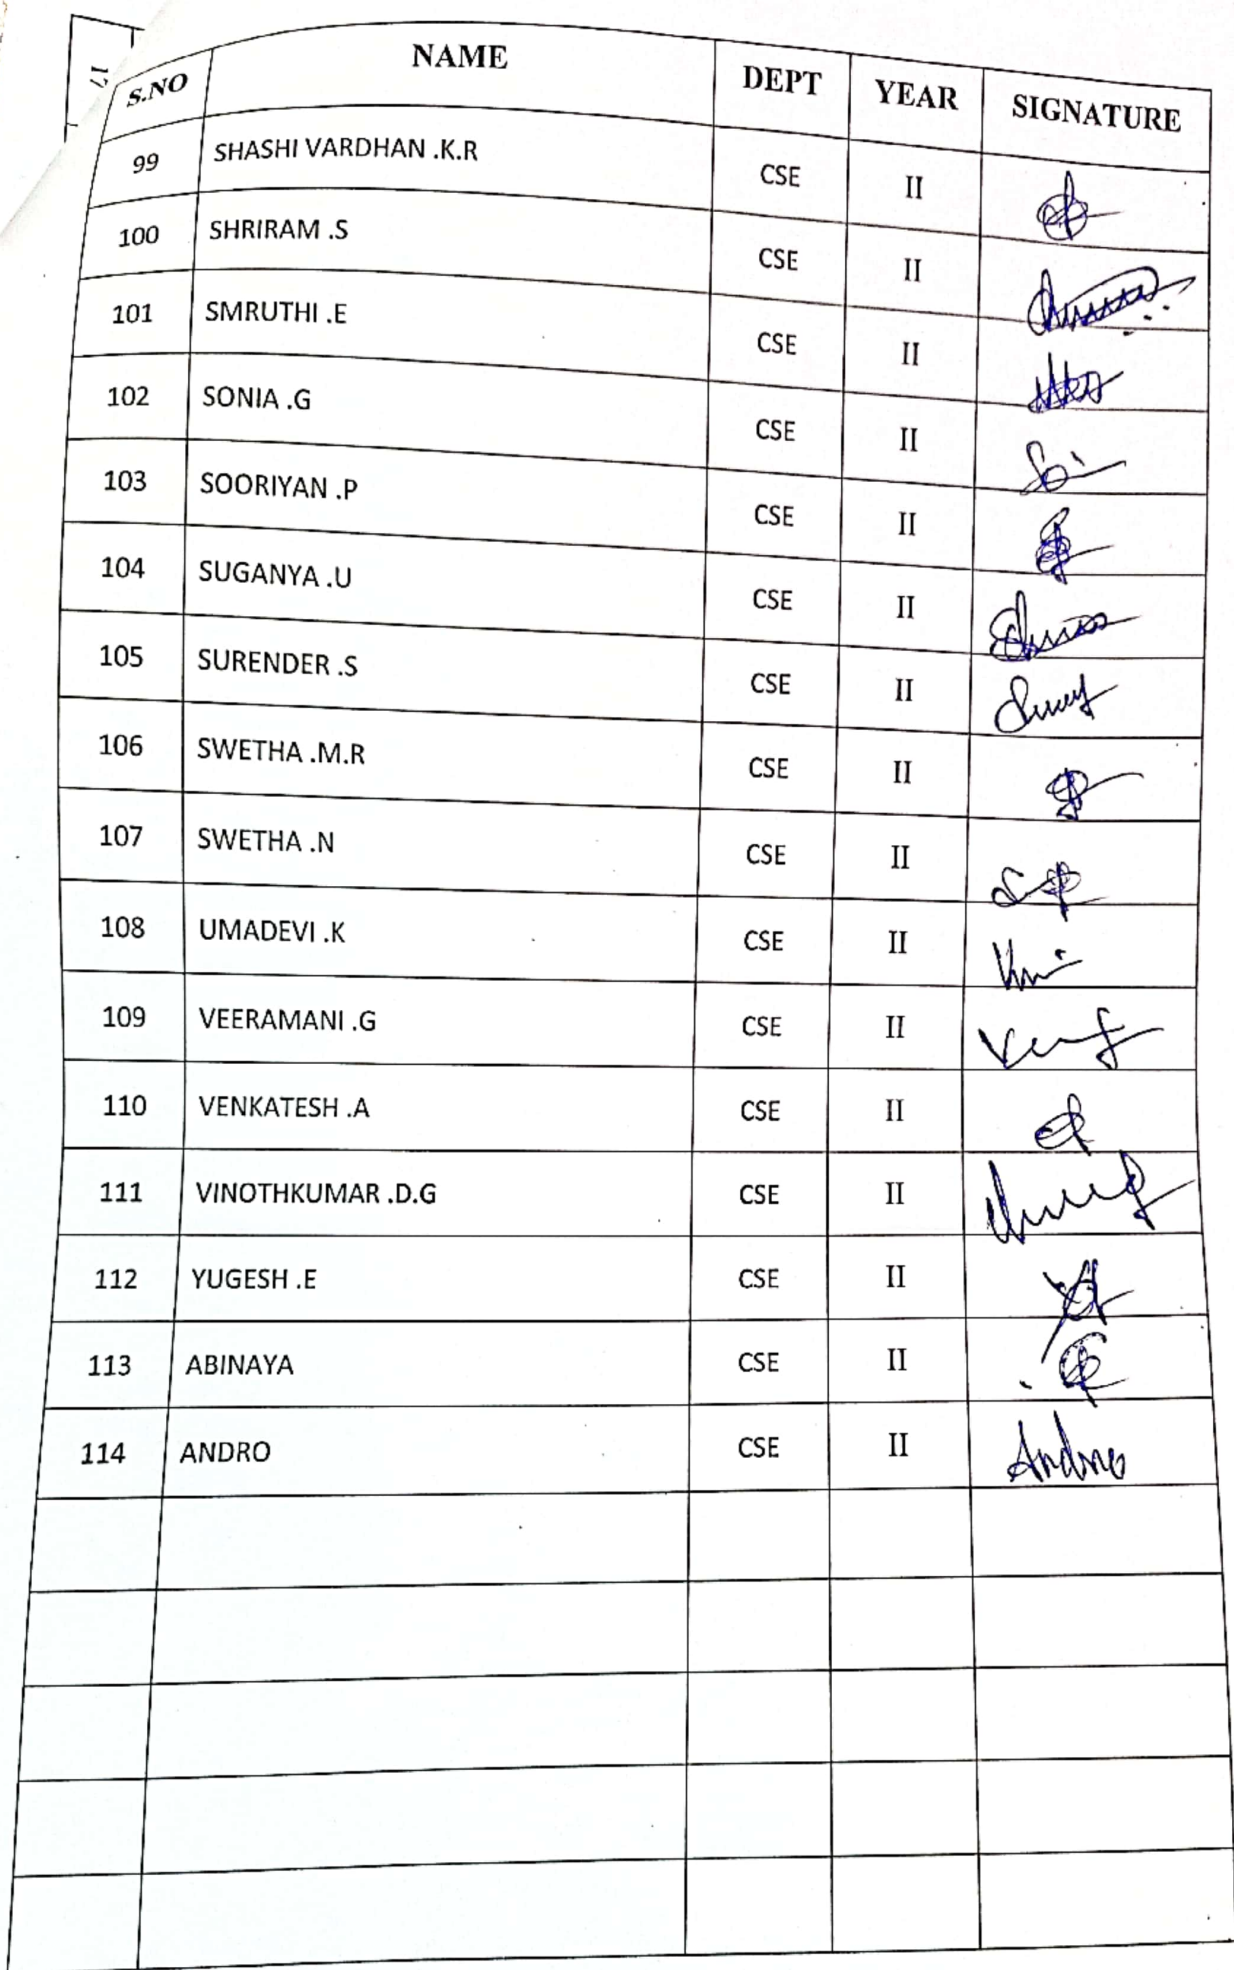 17
S.NO NAME DEPT YEAR SIGNATURE
99 SHASHI VARDHAN .K.R CSE II
100 SHRIRAM .S CSE II
101 SMRUTHI .E CSE II
102 SONIA .G CSE II
103 SOORIYAN .P CSE II
104 SUGANYA .U CSE II
105 SURENDER .S CSE II
106 SWETHA .M.R CSE II
107 SWETHA .N CSE II
108 UMADEVI .K CSE II
109 VEERAMANI .G CSE II
110 VENKATESH .A CSE II
111 VINOTHKUMAR .D.G CSE II
112 YUGESH .E CSE II
113 ABINAYA CSE II
114 ANDRO CSE II Andro